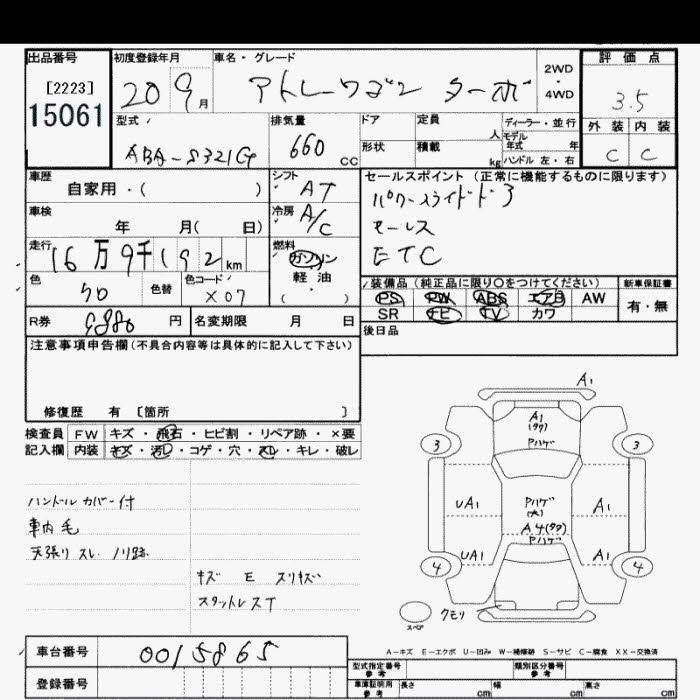 出品番号
[2223]
15061
初度登録年月
20 9月
車名・グレード
アトレーワゴン ターボ
2WD
・
4WD
評価点
3.5
外装 内装
C C
型式
ABA-S321G
排気量
660 CC
ドア
形状
定員 人
積載 kg
ディーラー・並行
モデル年式 年
ハンドル 左・右
車歴
自家用・( )
シフト
AT
車検
年 月( 日)
冷房
A/C
走行
16万9千192km
燃料
ガソリン
軽・油
( ・ )
色
クロ
色替
色コード
X07
R券
9880 円
名変期限 月 日
セールスポイント(正常に機能するものに限ります)
パワースライドドア
キーレス
ETC
装備品(純正品に限り○をつけてください)
PS PW ABS エアB AW
SR TV カワ
新車保証書
有・無
後日品
注意事項申告欄(不具合内容等は具体的に記入して下さい)
修復歴 有 [箇所 ]
検査員 FW キズ・飛石・ヒビ割・リペア跡・×要
記入欄 内装 キズ・汚レ・コゲ・穴・スレ・キレ・破レ
ハンドルカバー付
車内毛
天張りスレ ノリ跡
キズ E スリキズ
スタットレスT
A1
A1
(タワ)
Pハゲ
3 3
UA1
Pハゲ
(大)
A1
A4(タワ)
Pハゲ
UA1
A1
4 4
スペア
クモリ
A-キズ E-エクボ U-凹み W-補修跡 S-サビ C-腐食 XX-交換済
車台番号 0015865
登録番号
型式指定番号
参考
類別区分番号
参考
車庫証明用
参考
長さ cm 幅 cm 高さ cm